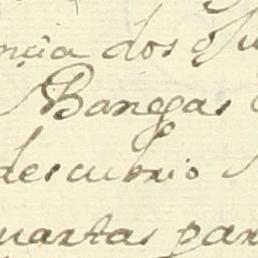 nçia dos
Banegas
descubrio
uartas par